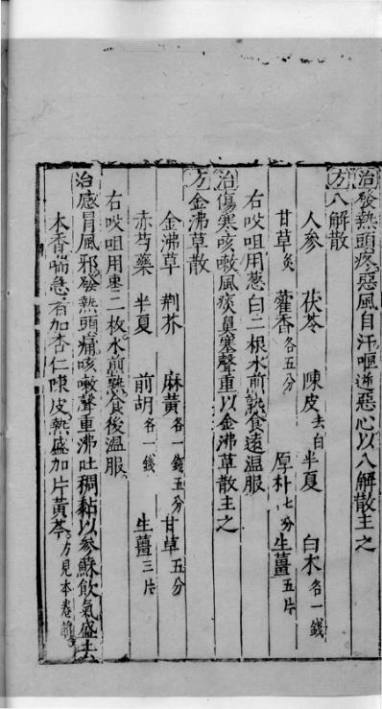 治發熱頭疼惡風自汗嘔逆惡心以八解散主之
方八解散
人參 茯苓 陳皮去白 半夏 白木各一錢
甘草炙 藿香各五分 厚朴七分 生薑五片
右㕮咀用葱白二根水煎熟食遠溫服
治傷寒咳嗽風痰鼻塞聲重以金沸草散主之
方金沸草散
金沸草 荆芥 麻黃各一錢五分 甘草五分
赤芍藥 半夏 前胡各一錢 生薑三片
右㕮咀用棗二枚水煎熟食後溫服
治感冒風邪發熱頭痛咳嗽聲重沸吐稠黏以參蘇飲氣盛去
木香喘急者加杏仁陳皮熱盛加片黃芩方見本卷前